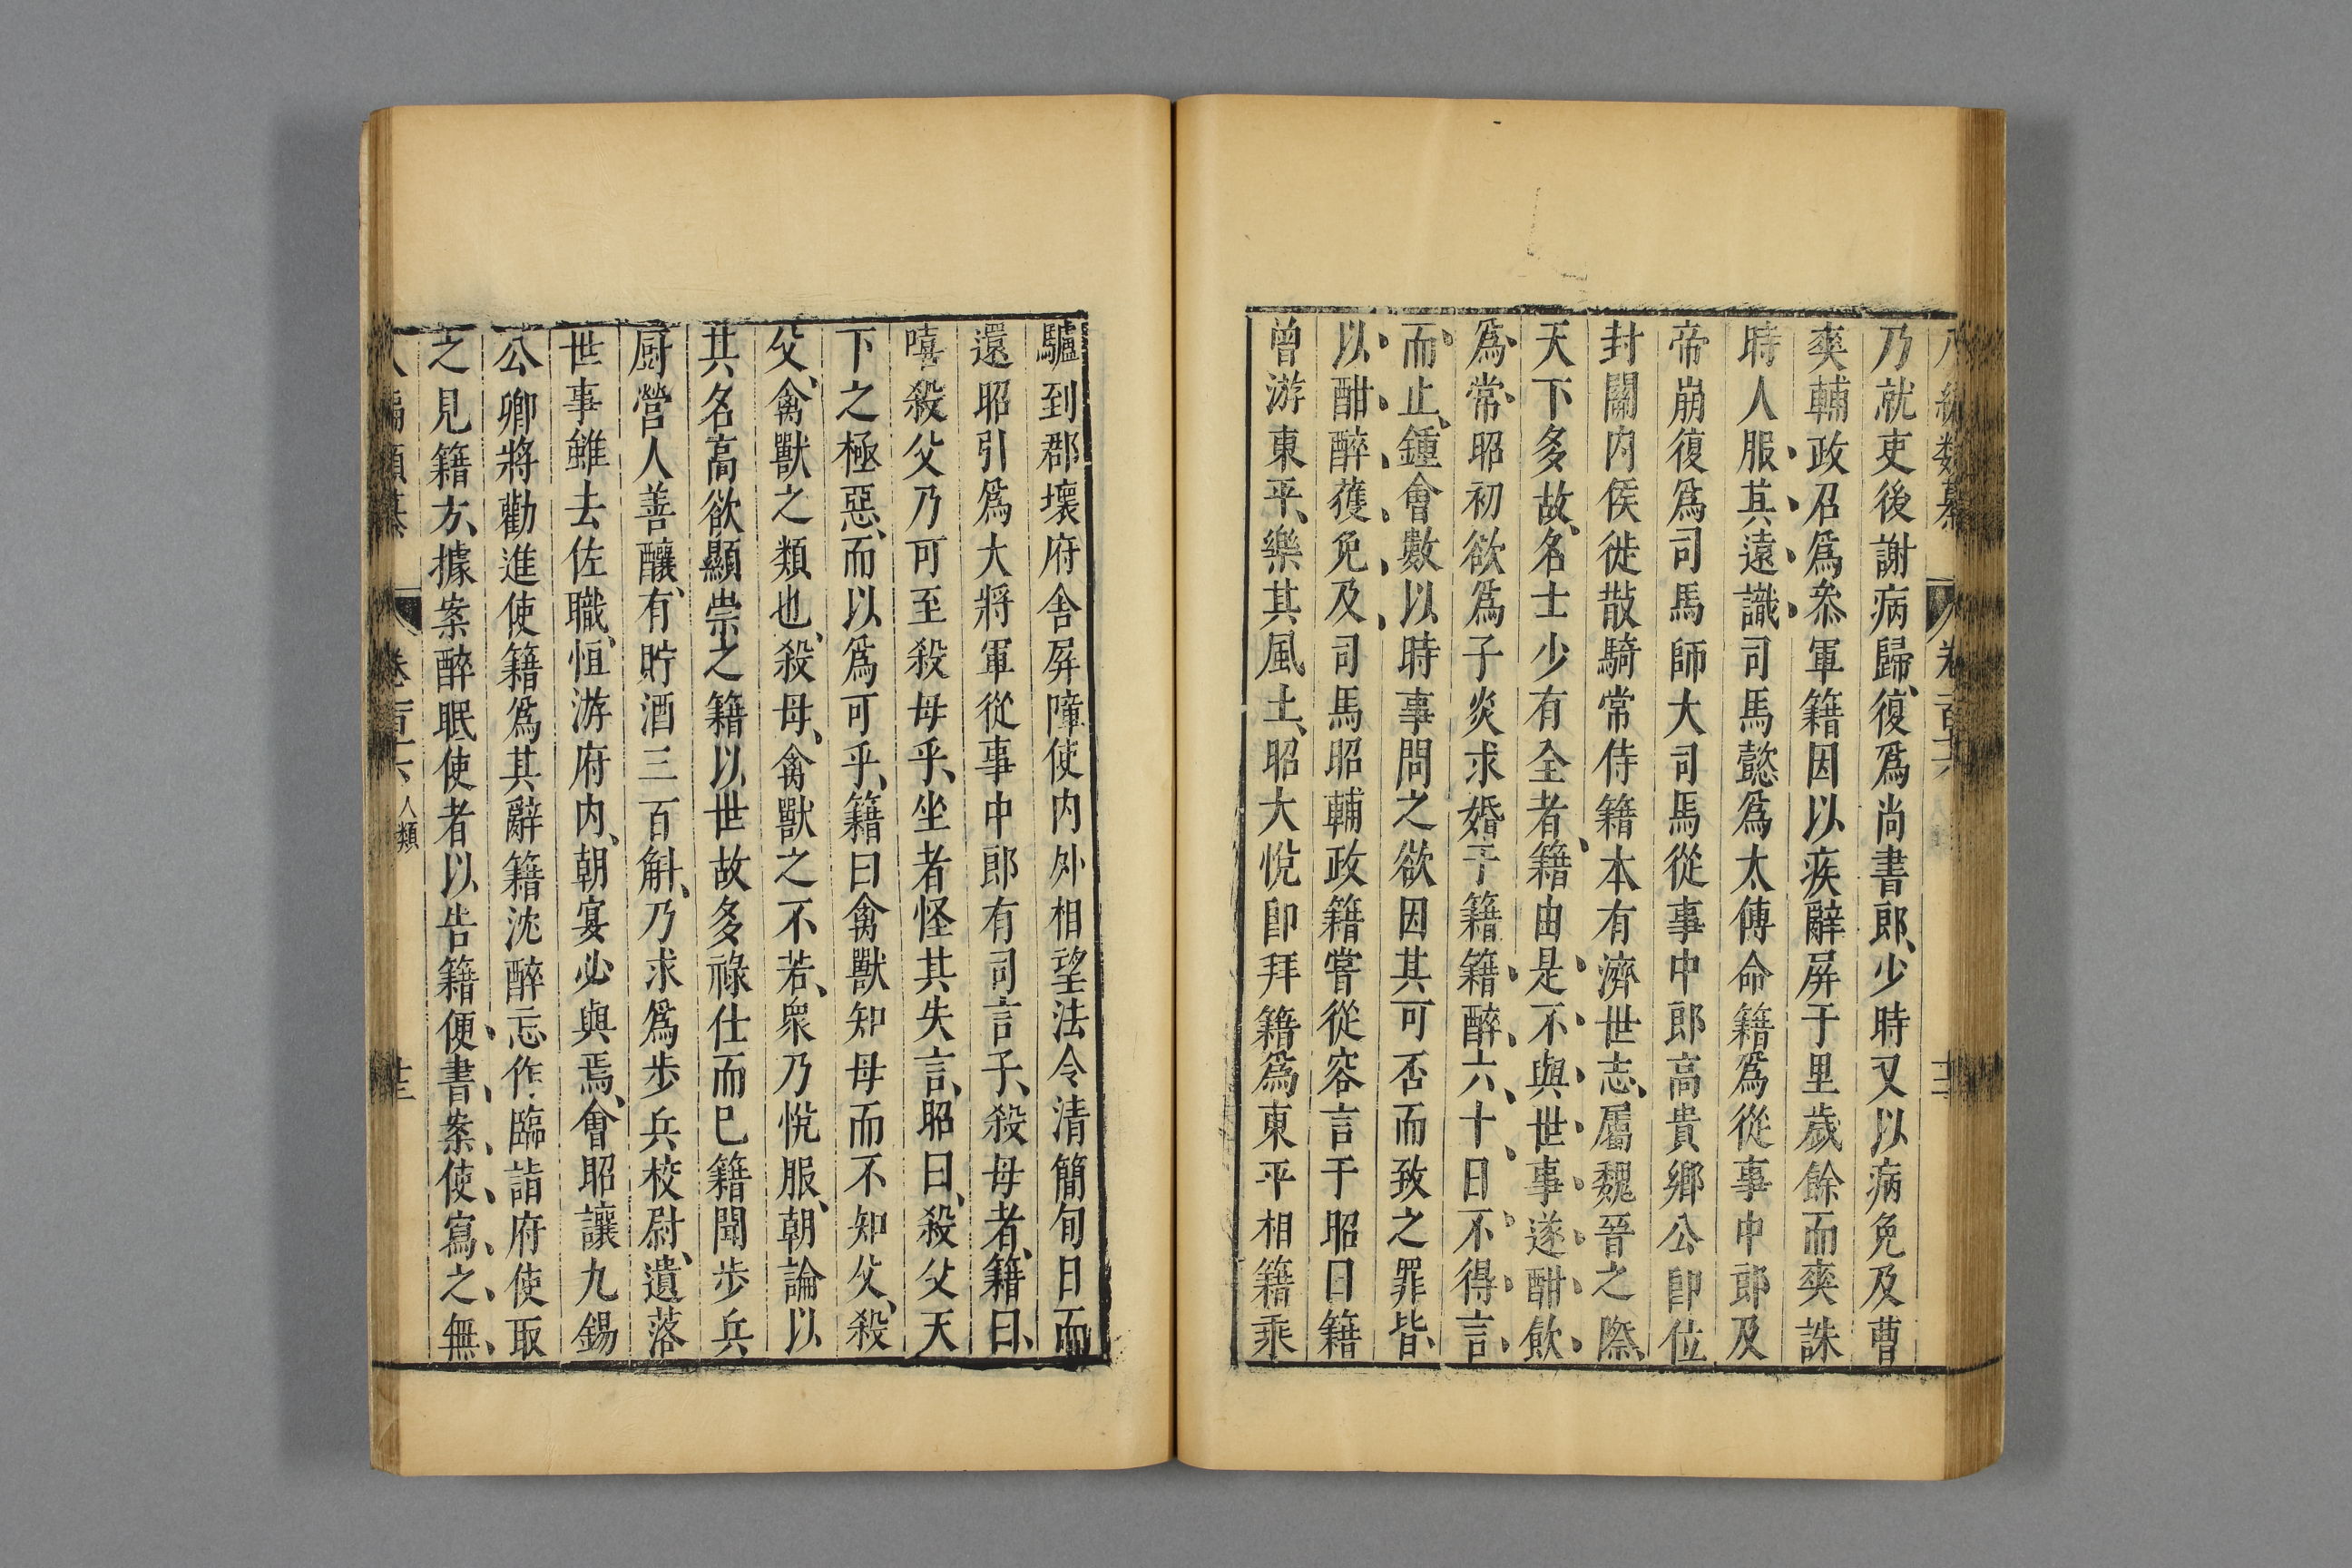 八編類纂 卷一百十六 十二
乃就吏後謝病歸、復爲尚書郎、少時又以病免及曹
爽輔政召爲叅軍籍因以疾辭屏于里歲餘而爽誅
時人服其遠識司馬懿爲太傅命籍爲從事中郎及
帝崩復爲司馬師大司馬從事中郎高貴鄉公卽位
封關内侯徙散騎常侍籍本有濟世志、屬魏晉之際、
天下多故、名士少有全者、籍由是不與世事遂酣飲
爲常昭初欲爲子炎求婚于籍籍醉六十日不得言
而止、鍾會數以時事問之欲因其可否而致之罪皆
以酣醉獲免及司馬昭輔政籍嘗從容言于昭曰籍
曾游東平、樂其風土、昭大悅卽拜籍爲東平相籍乘
驢到郡壞府舍屏障使内外相望法令清簡旬日而
還昭引爲大將軍從事中郎有司言子、殺母者、籍曰、
嘻殺父乃可至殺母乎、坐者怪其失言、昭曰、殺父天
下之極惡、而以爲可乎、籍曰禽獸知母而不知父、殺
父、禽獸之類也、殺母、禽獸之不若、衆乃悅服、朝論以
其名高欲顯崇之籍以世故多祿仕而已籍聞步兵
厨營人善釀、有貯酒三百斛、乃求爲步兵校尉、遺落
世事雖去佐職、恒游府内、朝宴必與焉、會昭讓九錫
公卿將勸進使籍爲其辭籍沈醉忘作臨詣府使取
之見籍方、據案醉眠使者以告籍便書案使寫之無
八編類纂 卷一百十六 人類 十三